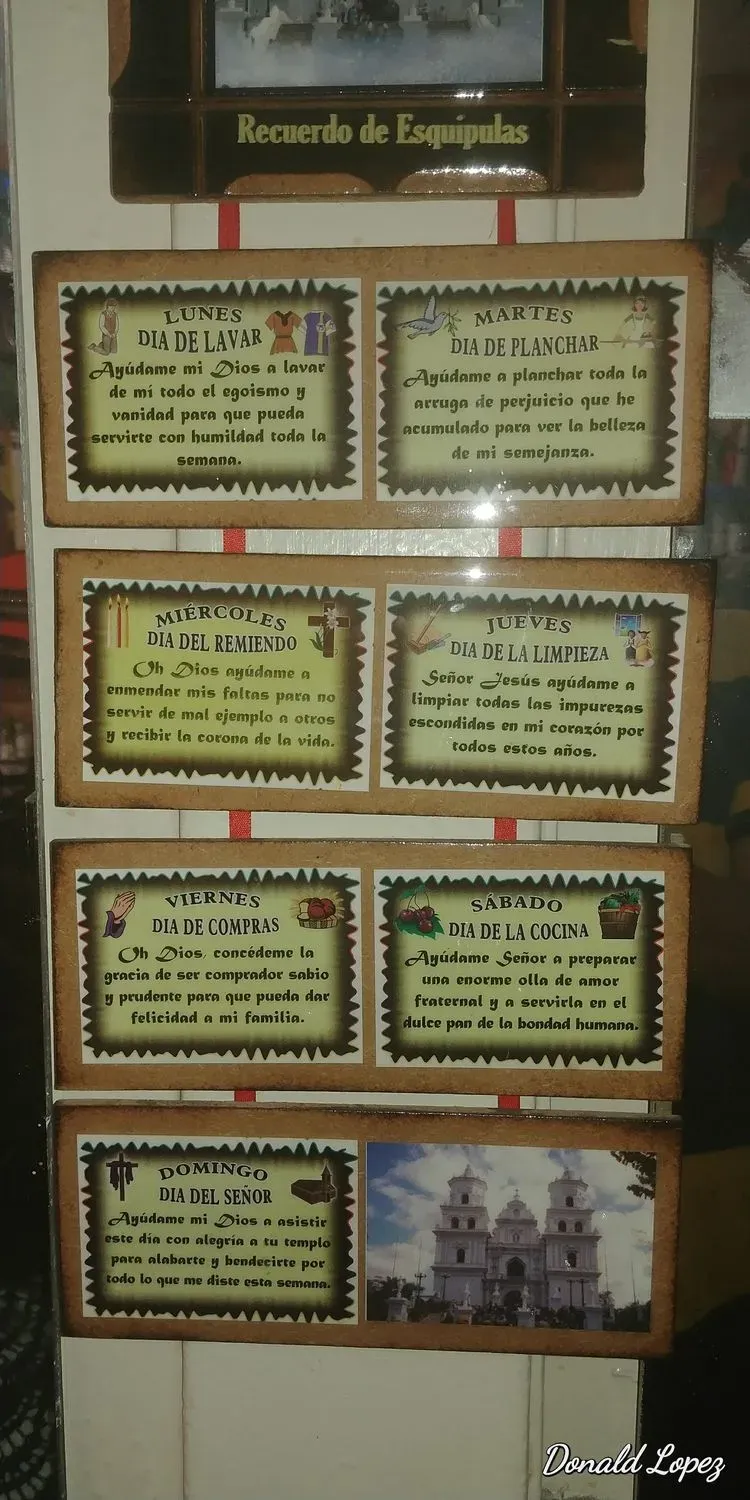 Recuerdo de Esquipulas
LUNES
DIA DE LAVAR
Ayúdame mi Dios a lavar
de mí todo el egoismo y
vanidad para que pueda
servirte con humildad toda la
semana.
MARTES
DIA DE PLANCHAR
Ayúdame a planchar toda la
arruga de perjuicio que he
acumulado para ver la belleza
de mi semejanza.
MIÉRCOLES
DIA DEL REMIENDO
Oh Dios ayúdame a
enmendar mis faltas para no
servir de mal ejemplo a otros
y recibir la corona de la vida.
JUEVES
DIA DE LA LIMPIEZA
Señor Jesús ayúdame a
limpiar todas las impurezas
escondidas en mi corazón por
todos estos años.
VIERNES
DIA DE COMPRAS
Oh Dios, concédeme la
gracia de ser comprador sabio
y prudente para que pueda dar
felicidad a mi familia.
SÁBADO
DIA DE LA COCINA
Ayúdame Señor a preparar
una enorme olla de amor
fraternal y a servirla en el
dulce pan de la bondad humana.
DOMINGO
DIA DEL SEÑOR
Ayúdame mi Dios a asistir
este día con alegría a tu templo
para alabarte y bendecirte por
todo lo que me diste esta semana.
Donald Lopez